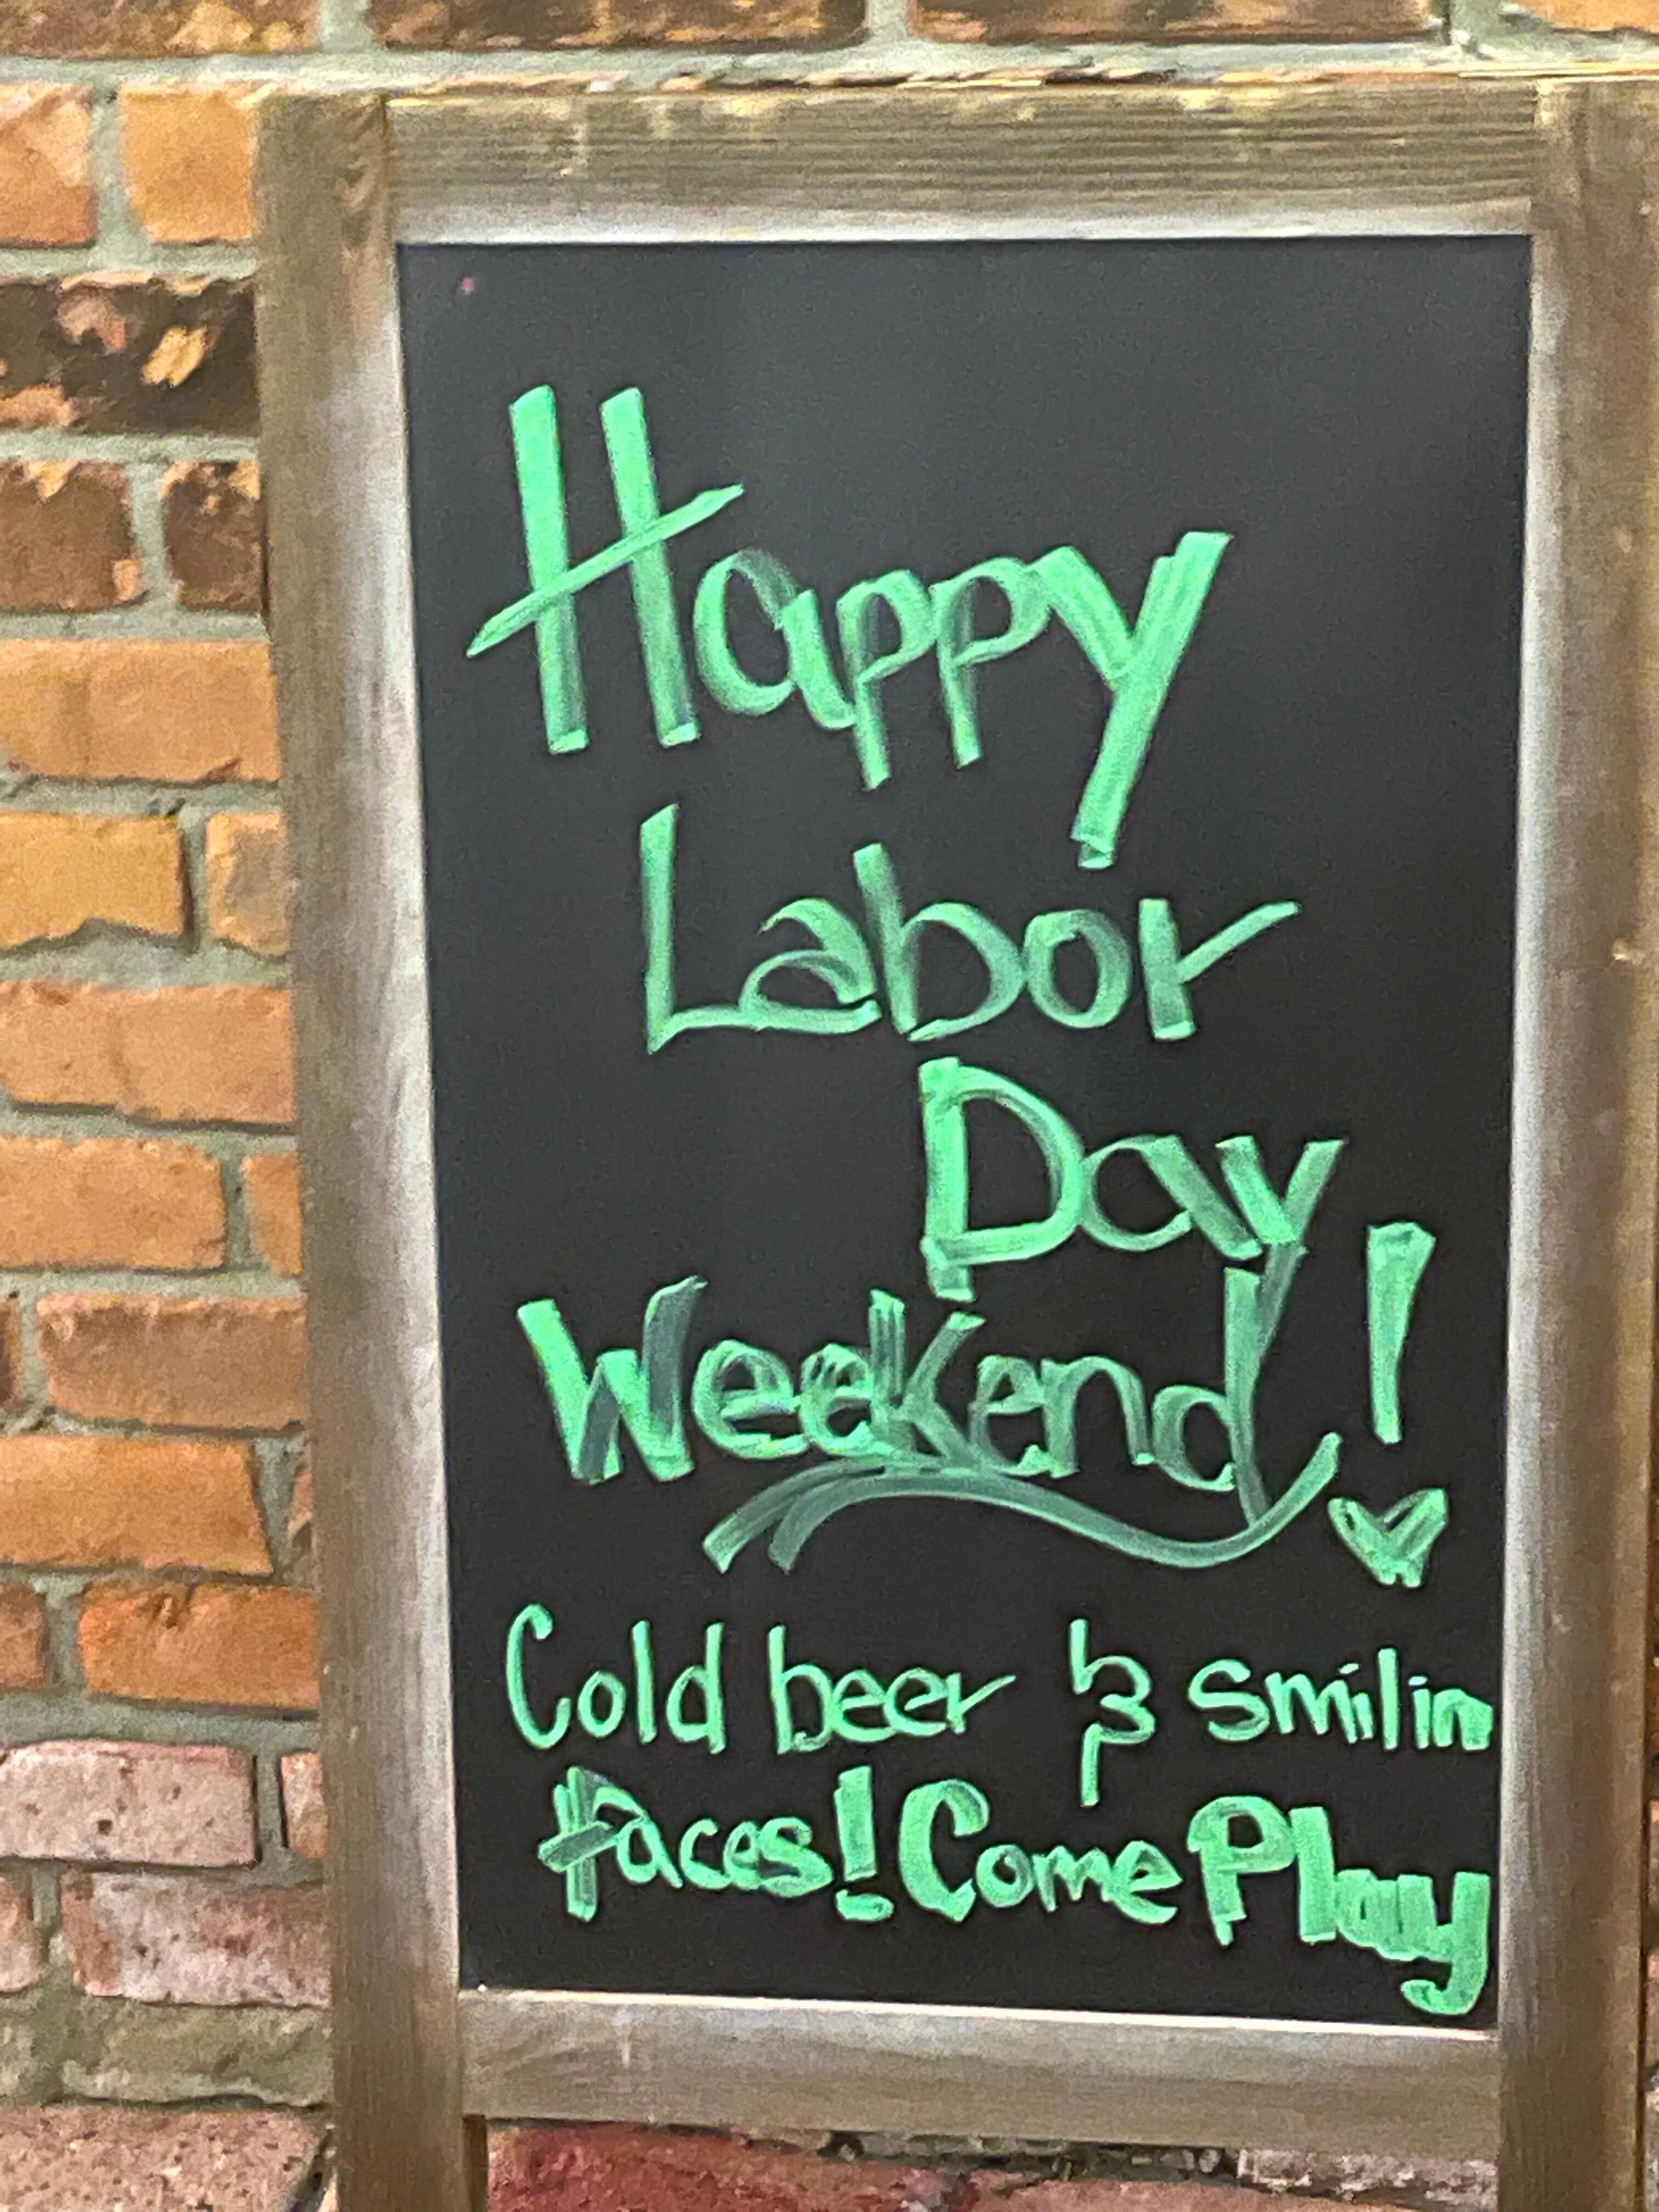 Happy
Labor
Day
Weekend!
Cold beer & Smilin
faces! Come Play